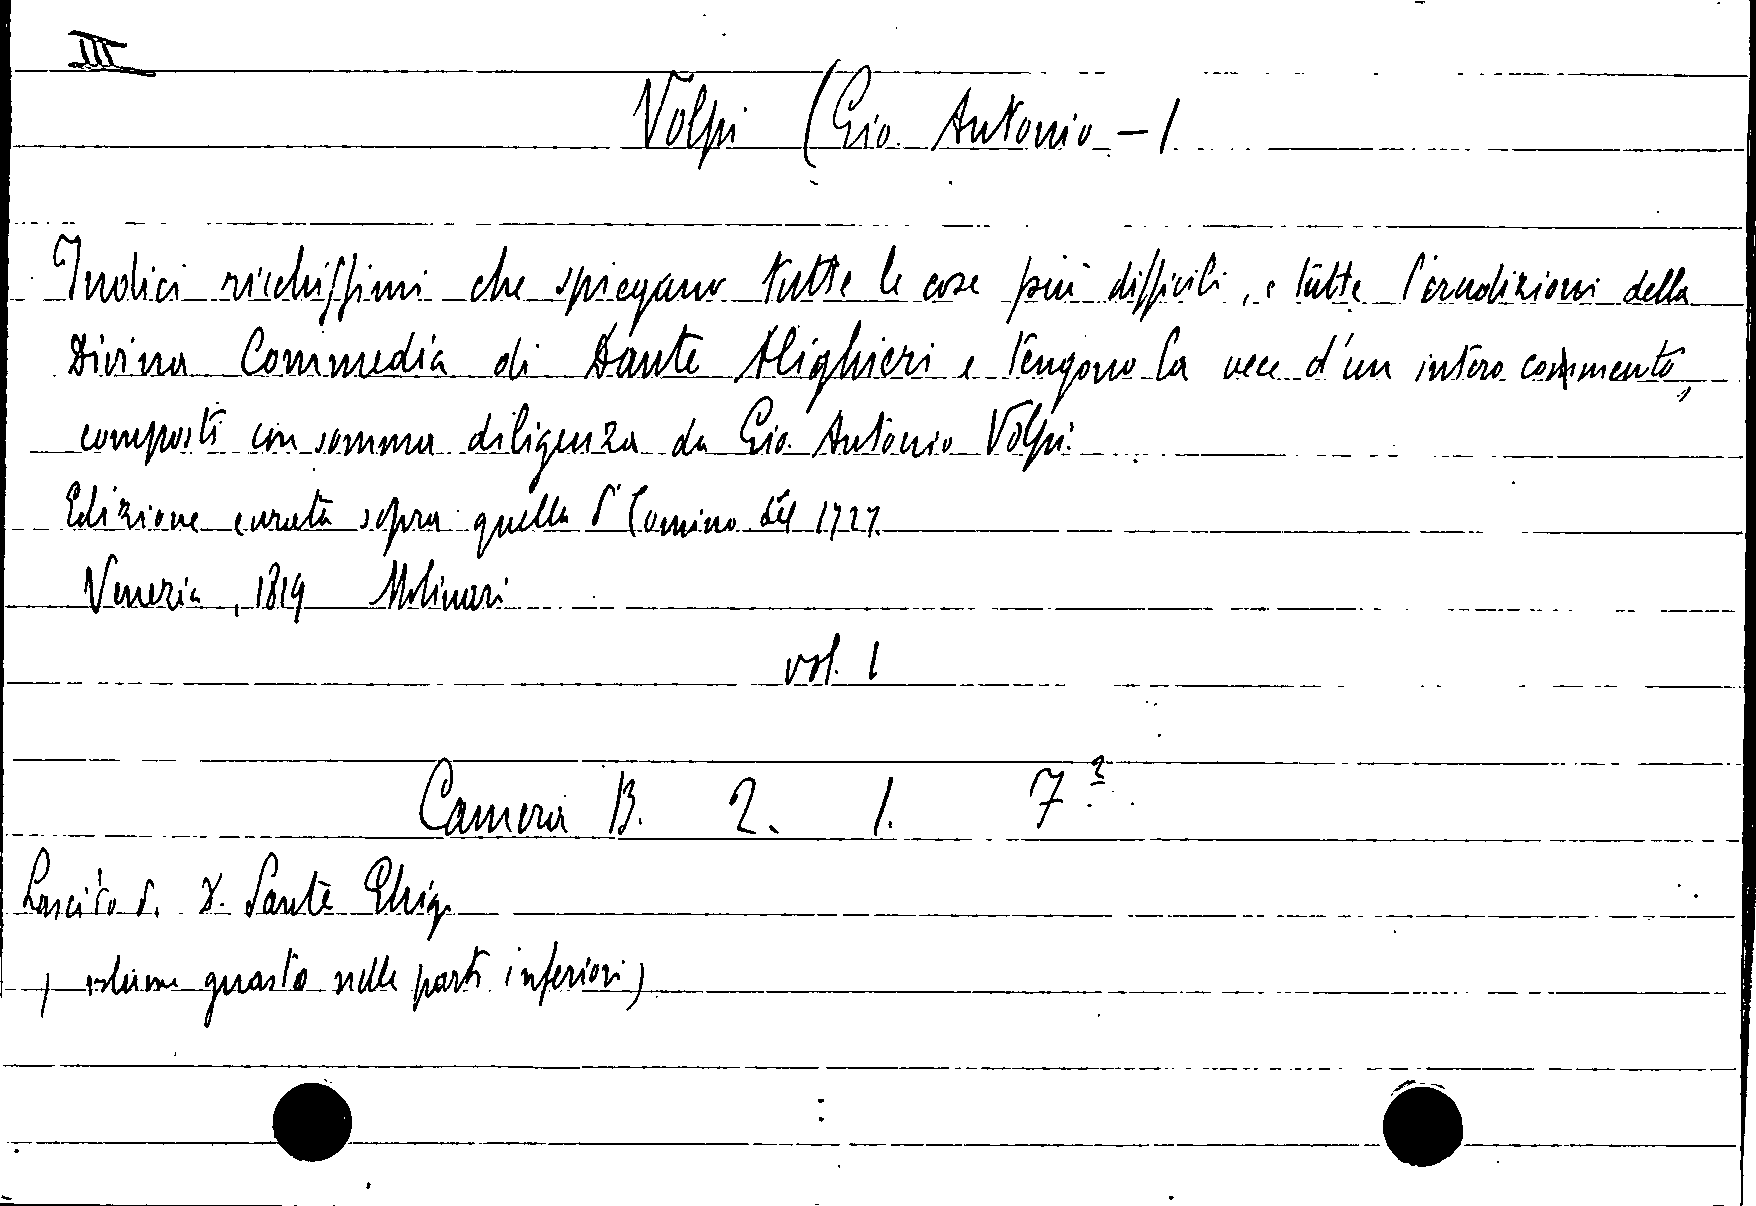 III
Volpi (Gio. Antonio - )
Indici ricchissimi che spiegano tutte le cose più difficili, e tutte l'erudizioni della
Divina Commedia di Dante Alighieri e tengono la vece d'un intero commento,
composti con somma diligenza da Gio. Antonio Volpi.
Edizione curata sopra quella d Comino del 1727.
Venezia, 1819 Molinari
vol. 1
Camera B. 2. 1. 7²
Lascito d. D. Sante
(volume guasto nelle parti inferiori)